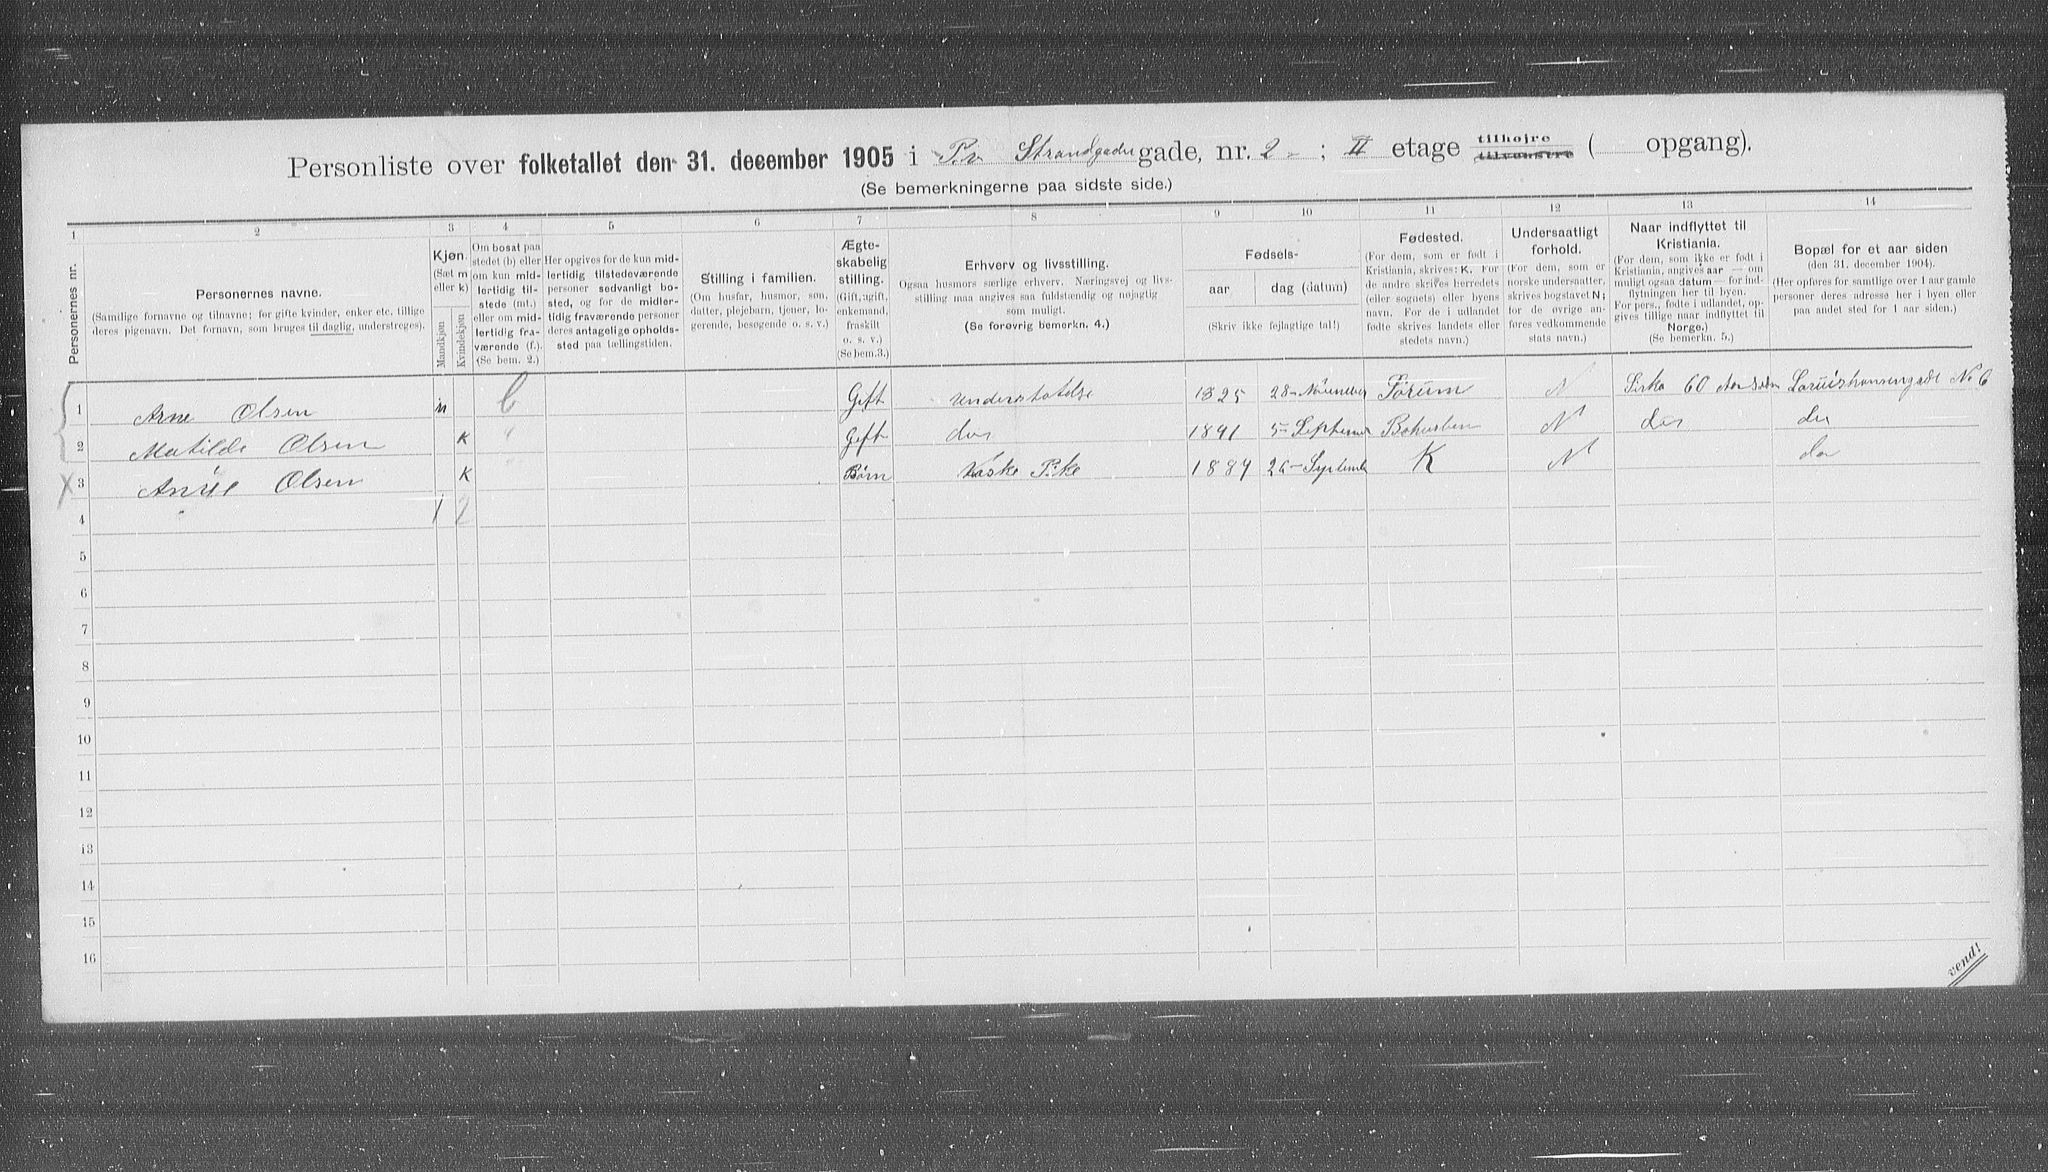 Personliste over folketallet den 31. december 1905 i P.v Strandgaden gade, nr. 2 - ; II etage tilhøjre tilvenstre ( opgang).
(Se bemerkningerne paa sidste side.)
1 2 3 4 5 6 7 8 9 10 11 12 13 14
Personernes nr.
Personernes navne.
(Samtlige fornavne og tilnavne; for gifte kvinder, enker etc. tillige
deres pigenavn. Det fornavn, som bruges til daglig, understreges).
Kjøn.
(Sæt m
eller k)
Mandkjøn
Kvindekjøn
Om bosat paa
stedet (b) eller
om kun mid-
lertidig til-
stede (mt.)
eller om mid-
lertidig fra-
værende (f.).
(Se bem. 2.)
Her opgives for de kun mid-
lertidig tilstedeværende
personer sedvanligt bo-
sted, og for de midler-
tidig fraværende personer
deres antagelige opholds-
sted paa tællingstiden.
Stilling i familien.
(Om husfar, husmor, søn,
datter, plejebarn, tjener, lo-
gerende, besøgende o. s. v.)
Ægte-
skabelig
stilling.
(Gift, ugift,
enkemand,
fraskilt
o. s. v.)
(Se bem.3.)
Erhverv og livsstilling.
Ogsaa husmors særlige erhverv. Næringsvej og livs-
stilling maa angives saa fuldstændig og nøjagtig
som muligt.
(Se forøvrig bemerkn. 4.)
Fødsels-
aar
dag (datum)
(Skriv ikke fejlagtige tal!)
Fødested.
(For dem, som er født i
Kristiania, skrives: K. For
de andre skrives herredets
(eller sognets) eller byens
navn. For de i udlandet
fødte skrives landets eller
stedets navn.)
Undersaatligt
forhold.
(For dem, som er
norske undersaatter,
skrives bogstavet N;
for de øvrige an-
føres vedkommende
stats navn.)
Naar indflyttet til
Kristiania.
(For dem, som ikke er født i
Kristiania, angives aar — om
muligt ogsaa datum — for ind-
flytningen her til byen.
For pers., fødte i udlandet, op-
gives tillige naar indflyttet til
Norge.)
(Se bemerkn. 5.)
Bopæl for et aar siden
(den 31. december 1904).
(Her opføres for samtlige over 1 aar gamle
personer deres adresse her i byen eller
paa andet sted for 1 aar siden.)
1 Arne Olsen m b Gift understøtelse 1825 28 - November N Sirka 60 Aar siden No 6
2 Matilde Olsen K " Gift do 1841 5 - September Bohuslen N do do
X 3 Olsen K " Børn Vaske Pike 1884 26 - September K N do
4 1 2
5
6
7
8
9
10
11
12
13
14
15
16
vend!